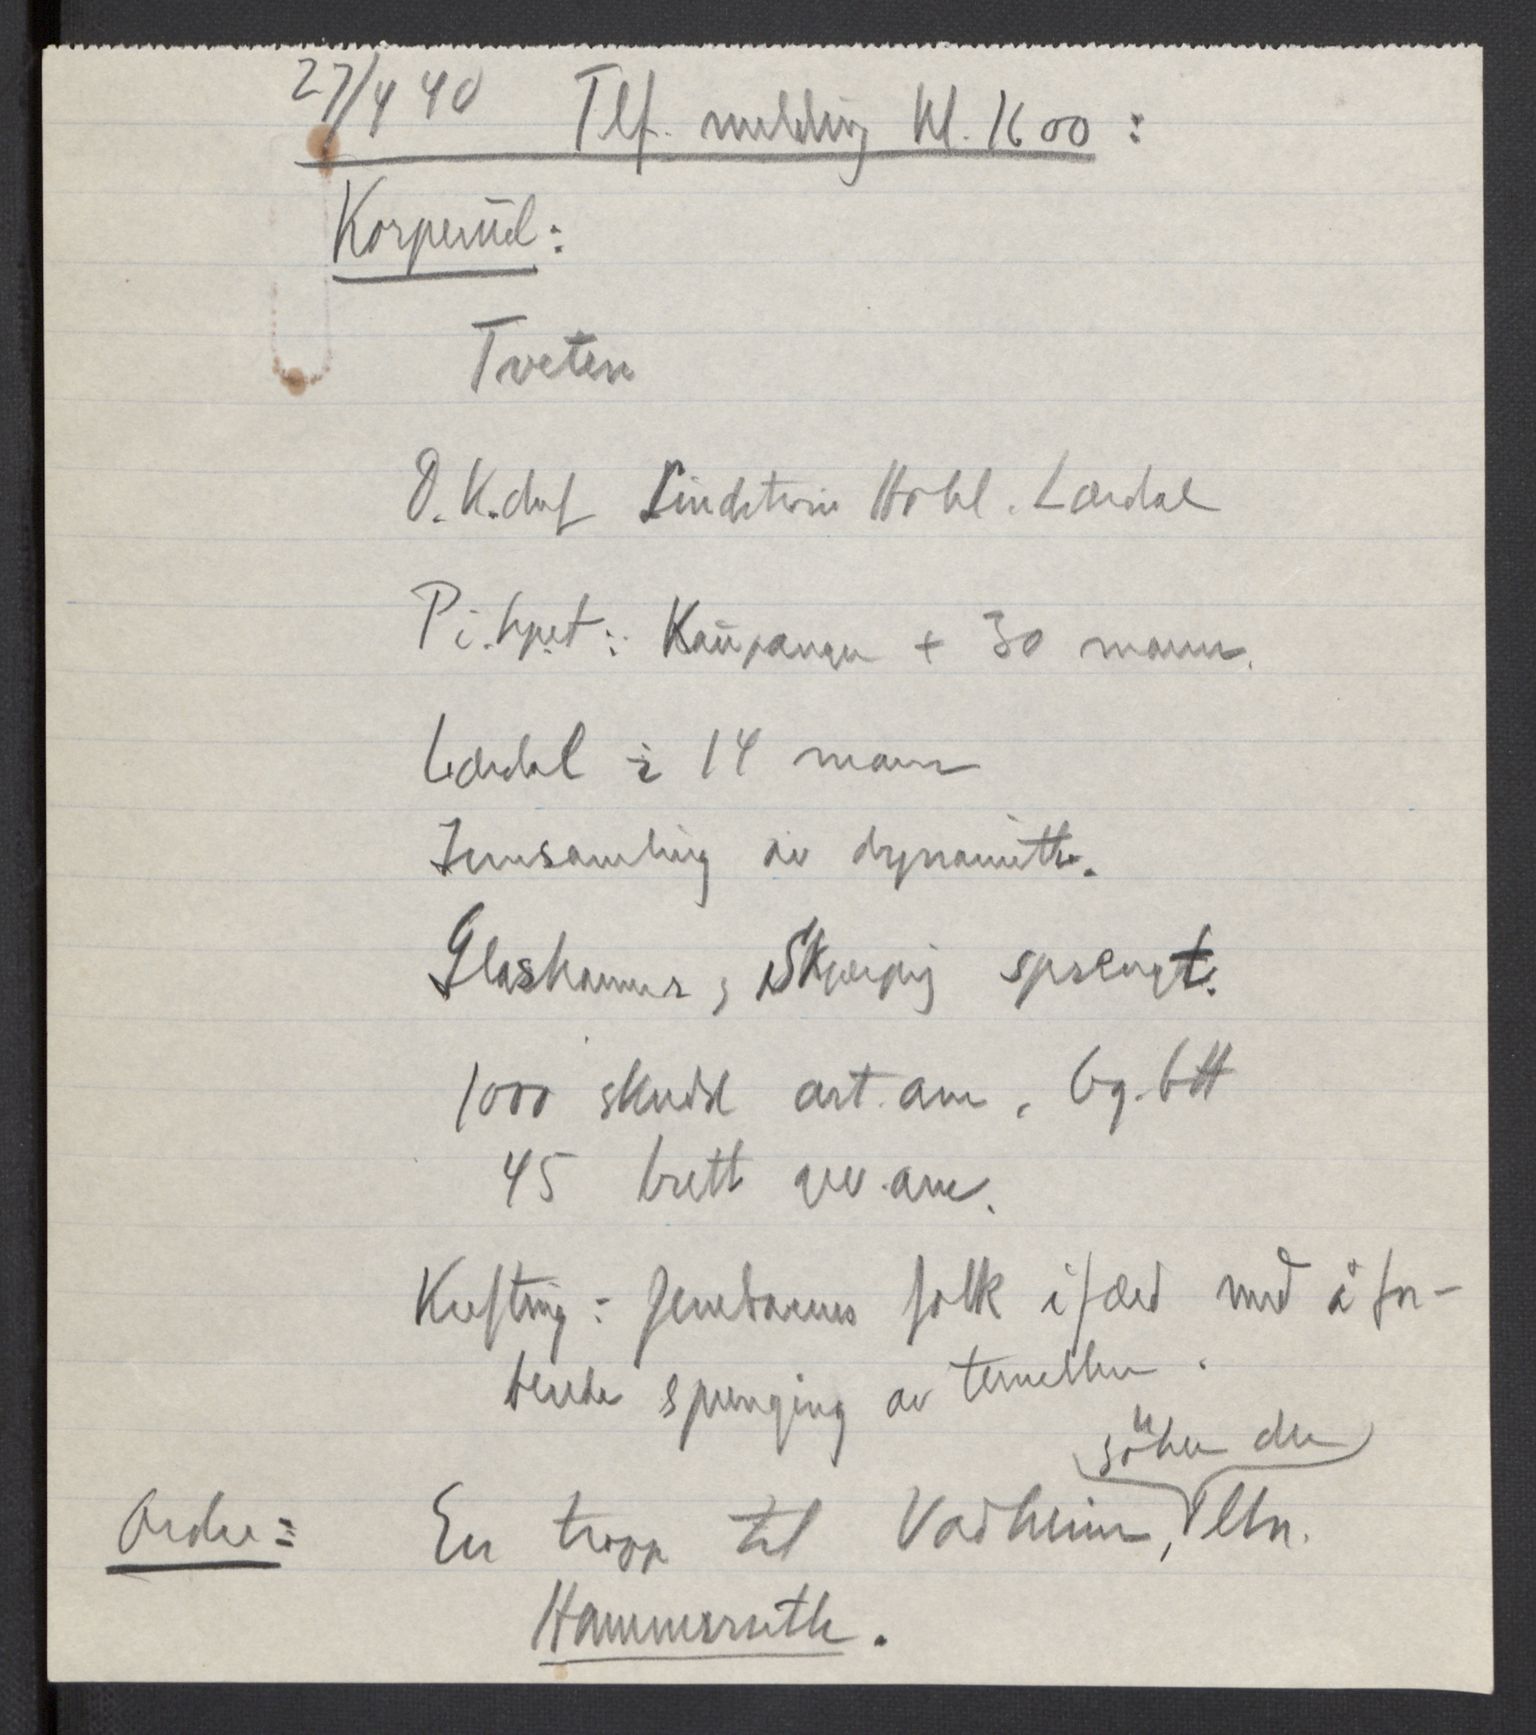 27/4 40 Tlf. melding kl. 1600 :
Korperud :
Tveten
O.K. Lindstrøm Hotel. Lærdal
Pi. kpet : Kaupanger + 30 mann.
Lærdal : 14 mann
Innsamling av dynamitt.
Glashammer, sprengt.
1000 skudd art. am.
45 brett gev. am.
Kefting : Jernbanens folk ifærd med å for-
berede sprenging av tunellen.
söker den
Ordre : En tropp til Vadheim, ltn.
Hammerseth.